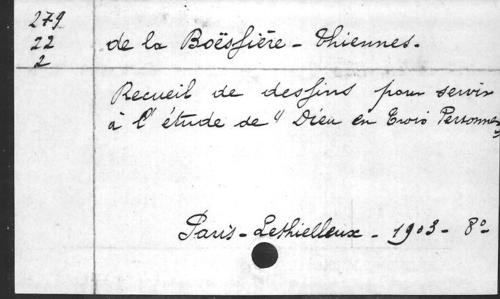 279
22
2
de la Boëssière - Thiennes.
Recueil de dessins pour servir
à l'étude de "Dieu en Trois Personnes"
Paris - Lethielleux - 1903 - 8°